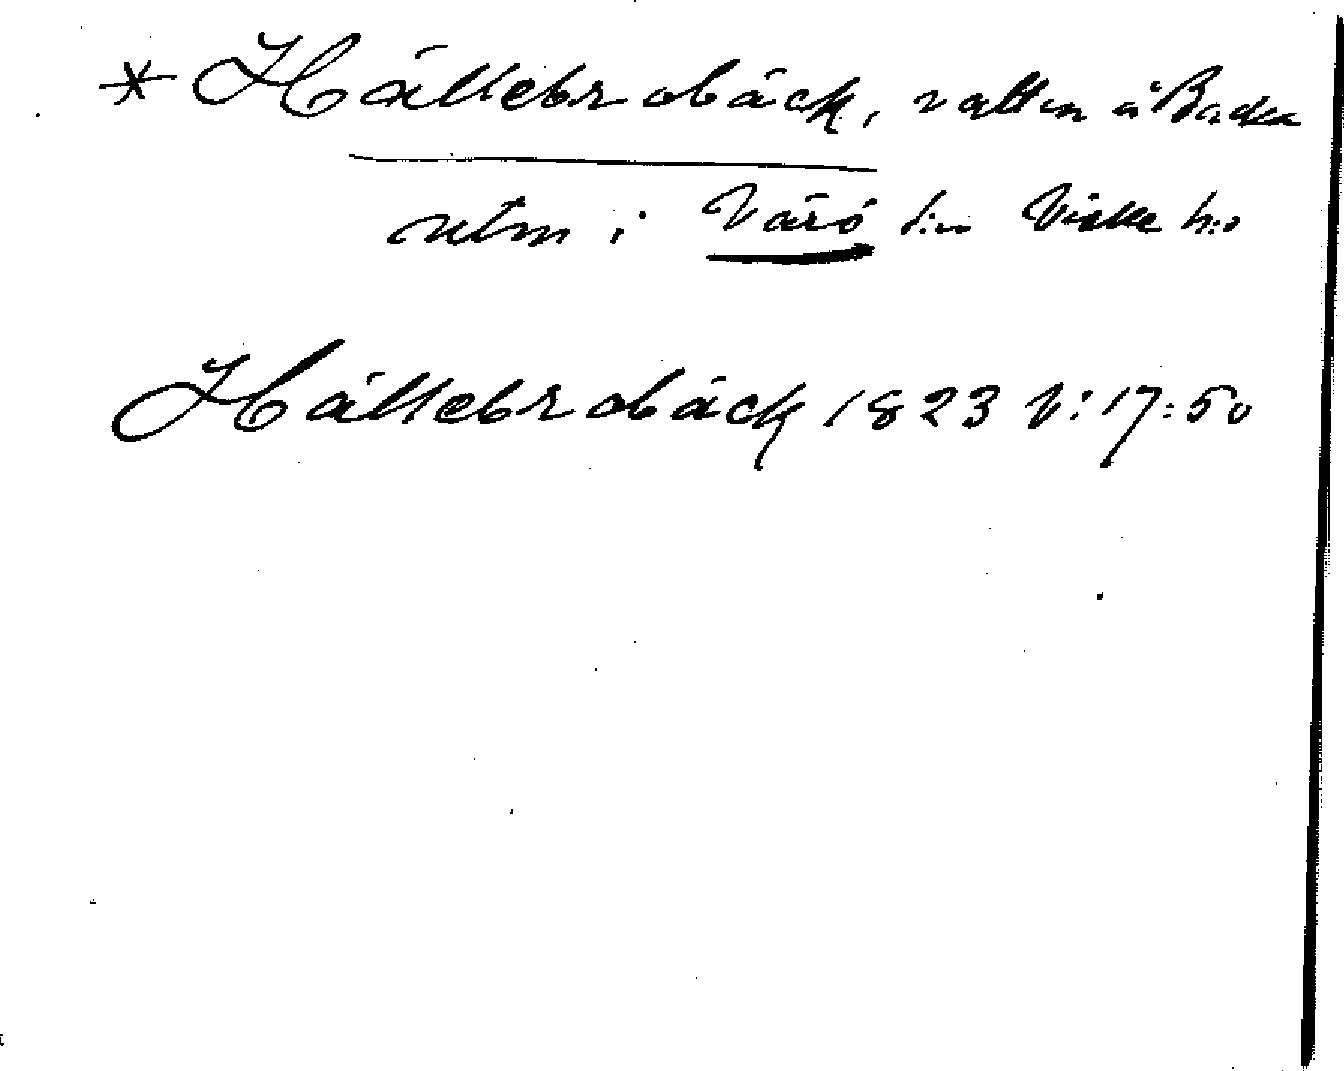 * Hällebrobäck, vatten å Backa
utm i Värö s:n Viske h:d
Hällebrobäck 1823 V: 17:50